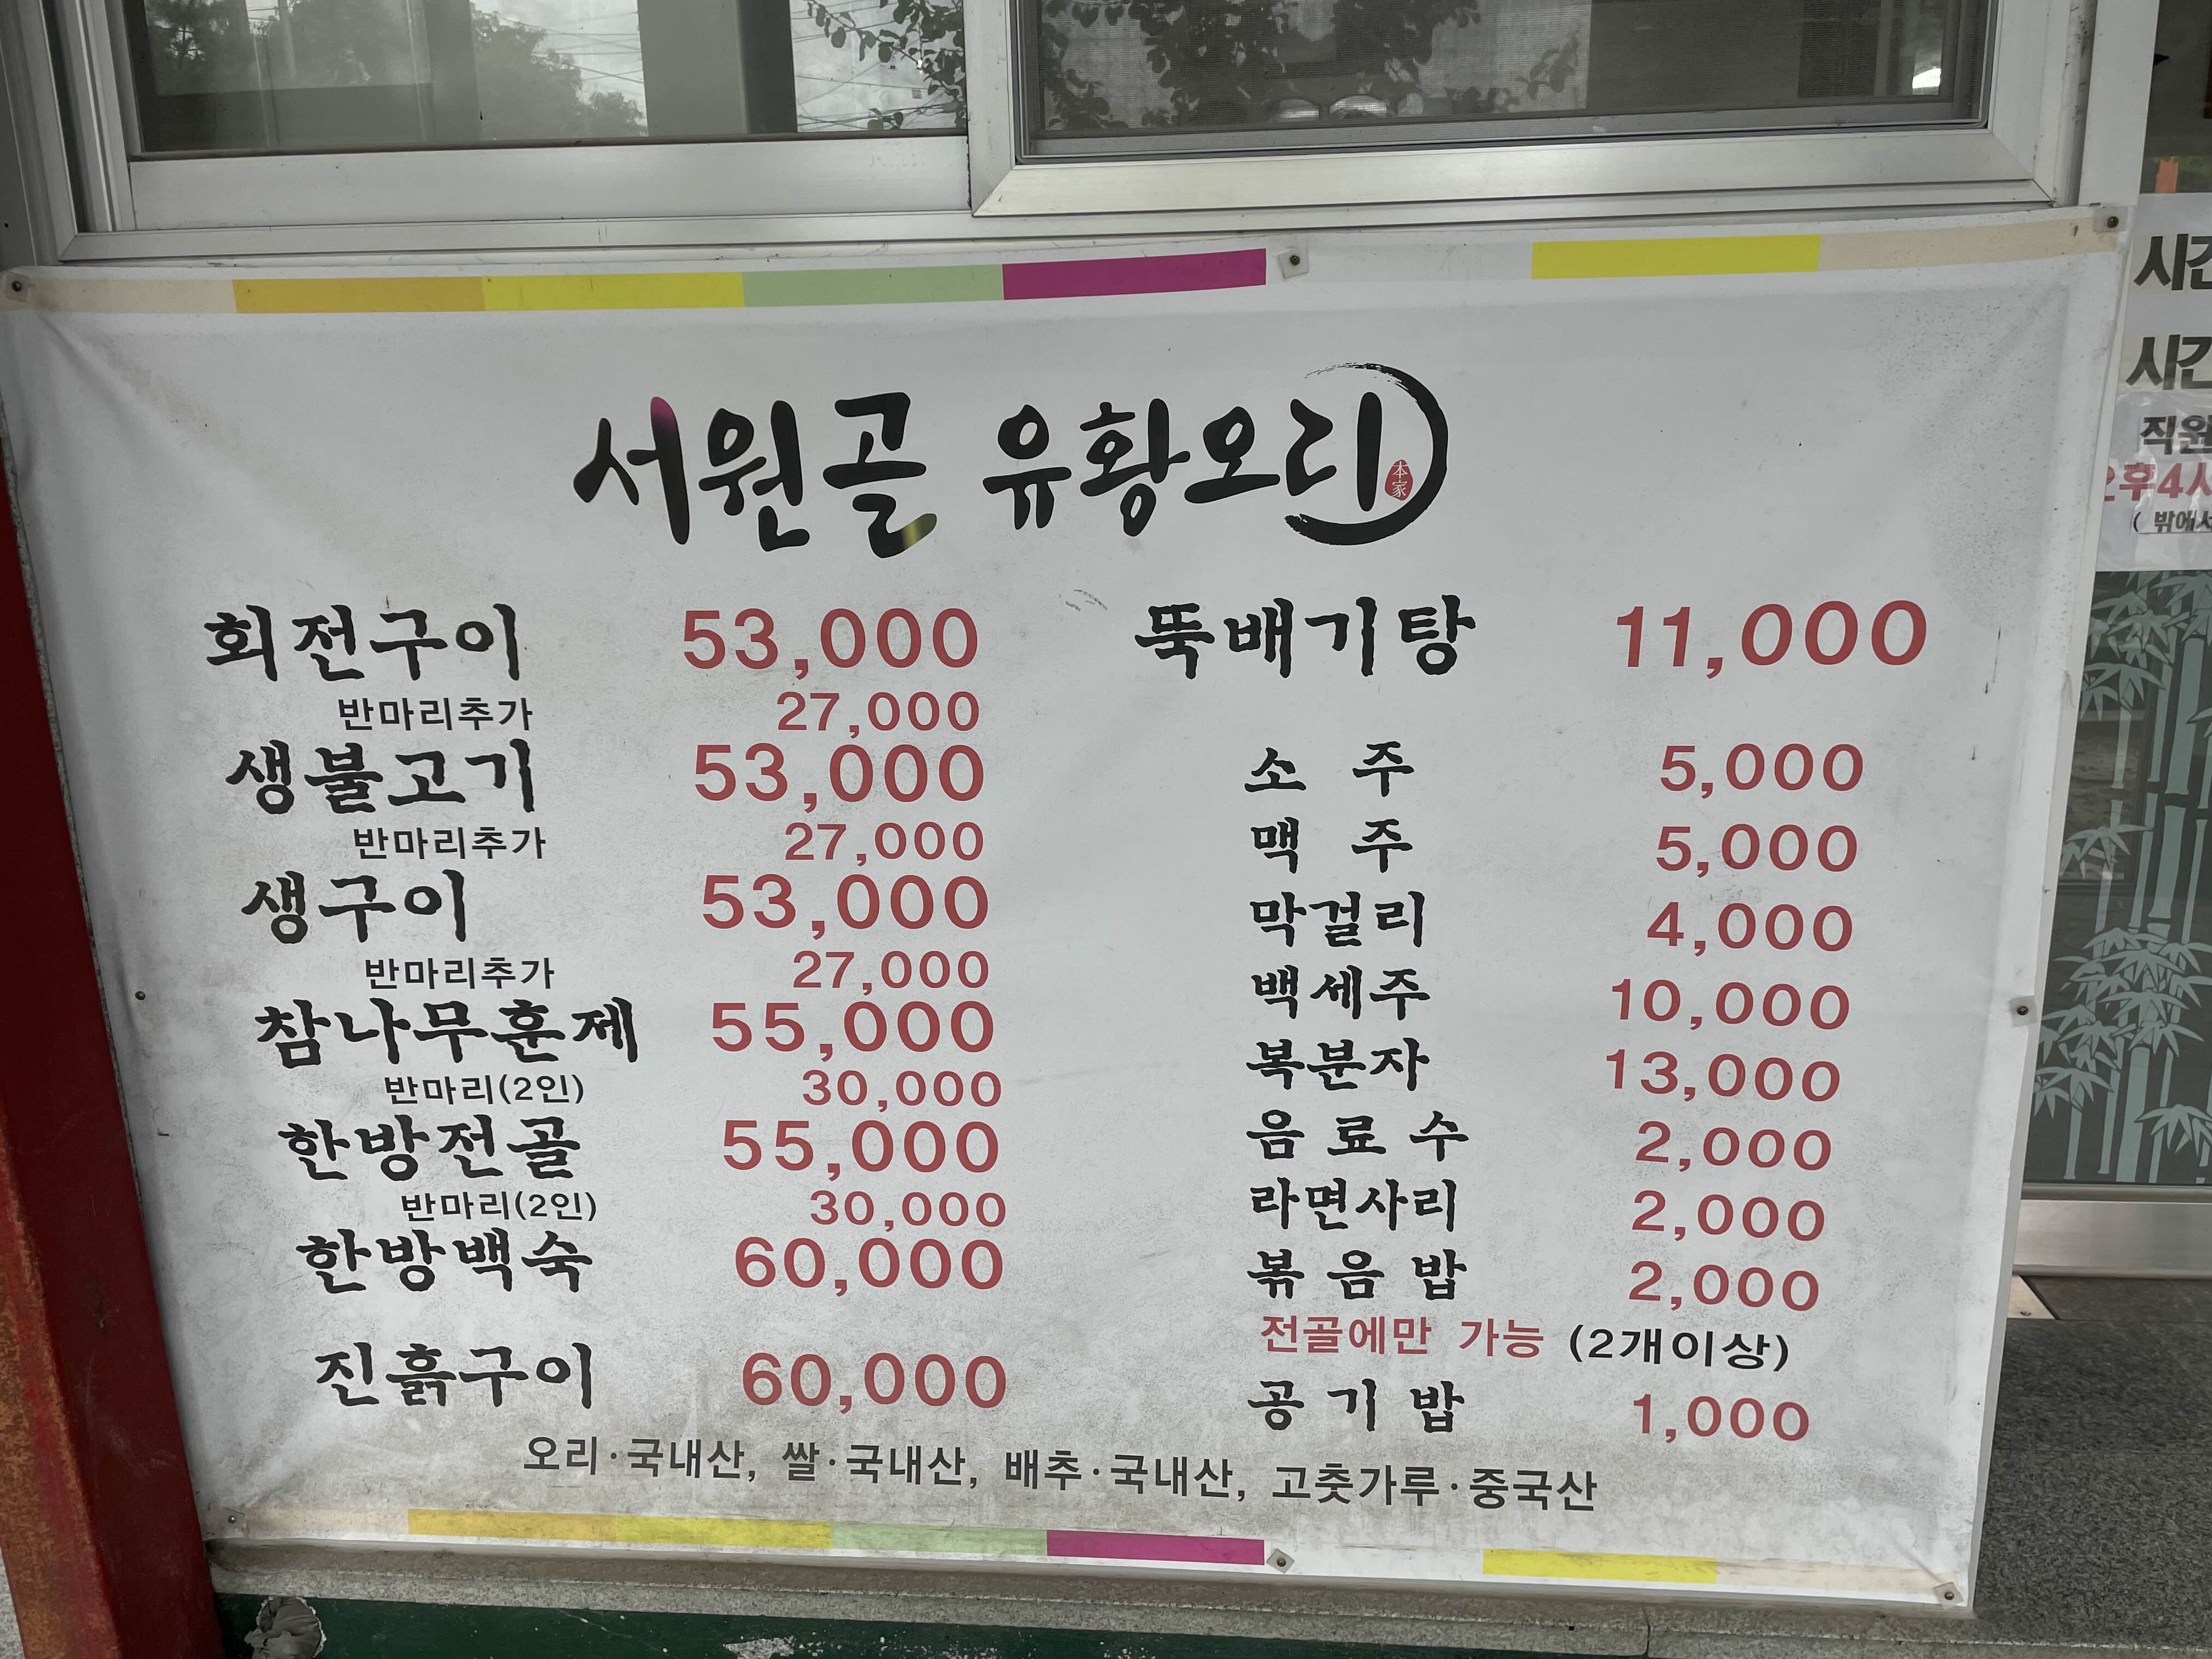 서원골 유황오리
本家
회전구이 53,000
반마리추가 27,000
생불고기 53,000
반마리추가 27,000
생구이 53,000
반마리추가 27,000
참나무훈제 55,000
반마리(2인) 30,000
한방전골 55,000
반마리(2인) 30,000
한방백숙 60,000
진흙구이 60,000
뚝배기탕 11,000
소 주 5,000
맥 주 5,000
막걸리 4,000
백세주 10,000
복분자 13,000
음 료 수 2,000
라면사리 2,000
볶 음 밥 2,000
전골에만 가능 (2개이상)
공 기 밥 1,000
오리·국내산, 쌀·국내산, 배추·국내산, 고춧가루·중국산
시간
시간
직원
오후4시
( 밖에서